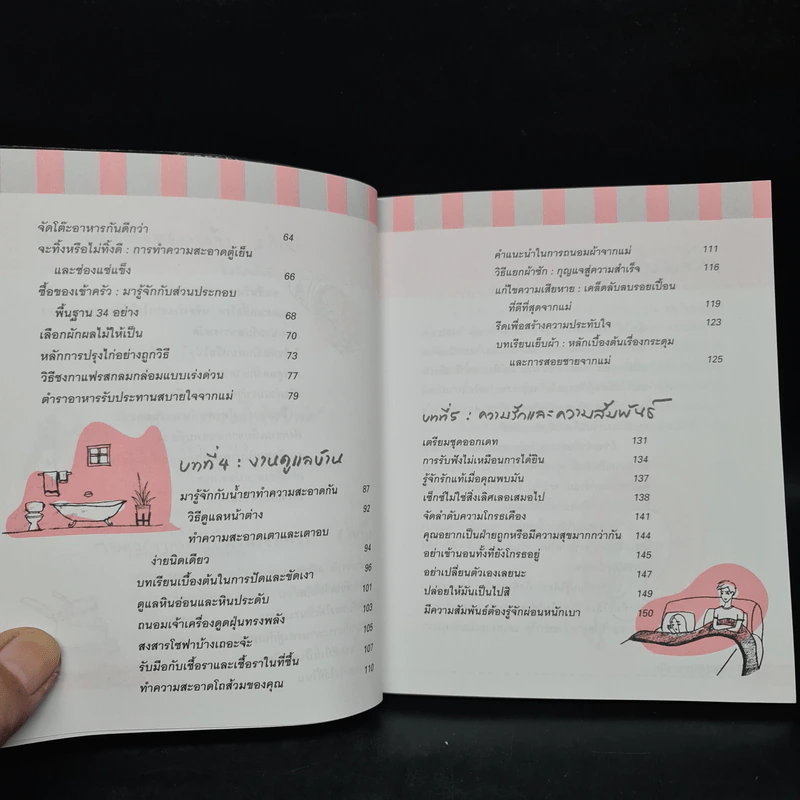 จัดโต๊ะอาหารกันดีกว่า 64
จะทิ้งหรือไม่ทิ้งดี : การทำความสะอาดตู้เย็น
และช่องแช่แข็ง 66
ซื้อของเข้าครัว : มารู้จักกับส่วนประกอบ
พื้นฐาน 34 อย่าง 68
เลือกผักผลไม้ให้เป็น 70
หลักการปรุงไก่อย่างถูกวิธี 73
วิธีชงกาแฟรสกลมกล่อมแบบเร่งด่วน 77
ตำราอาหารรับประทานสบายใจจากแม่ 79
บทที่ 4 : งานดูแลบ้าน
มารู้จักกับน้ำยาทำความสะอาดกัน 87
วิธีดูแลหน้าต่าง 92
ทำความสะอาดเตาและเตาอบ
ง่ายนิดเดียว 94
บทเรียนเบื้องต้นในการปัดและขัดเงา 96
ดูแลหินอ่อนและหินประดับ 101
ถนอมเจ้าเครื่องดูดฝุ่นทรงพลัง 103
สงสารโซฟาบ้างเถอะจ้ะ 105
รับมือกับเชื้อราและเชื้อราในที่ชื้น 107
ทำความสะอาดโถส้วมของคุณ 110
คำแนะนำในการถนอมผ้าจากแม่ 111
วิธีแยกผ้าซัก : กุญแจสู่ความสำเร็จ 116
แก้ไขความเสียหาย : เคล็ดลับลบรอยเปื้อน
ที่ดีที่สุดจากแม่ 119
รีดเพื่อสร้างความประทับใจ 123
บทเรียนเย็บผ้า : หลักเบื้องต้นเรื่องกระดุม
และการสอยชายจากแม่ 125
บทที่ 5 : ความรักและความสัมพันธ์
เตรียมชุดออกเดท 131
การรับฟังไม่เหมือนการได้ยิน 134
รู้จักรักแท้เมื่อคุณพบมัน 137
เซ็กซ์ไม่ใช่สิ่งเลิศเลอเสมอไป 138
จัดลำดับความโกรธเคือง 141
คุณอยากเป็นฝ่ายถูกหรือมีความสุขมากกว่ากัน 144
อย่าเข้านอนทั้งที่ยังโกรธอยู่ 145
อย่าเปลี่ยนตัวเองเลยนะ 147
ปล่อยให้มันเป็นไปสิ 149
มีความสัมพันธ์ต้องรู้จักผ่อนหนักเบา 150